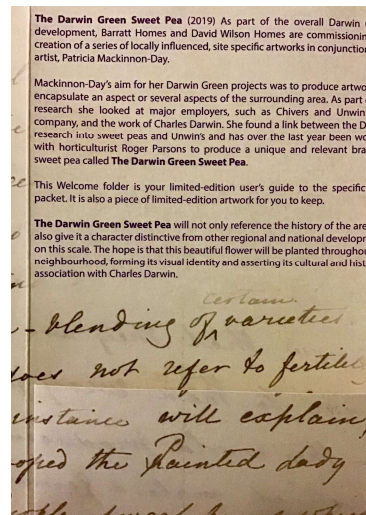 The Darwin Green Sweet Pea (2019) As part of the overall Darwin
development, Barratt Homes and David Wilson Homes are commissionin
creation of a series of locally influenced, site specific artworks in conjunction
artist, Patricia Mackinnon-Day.
Mackinnon-Day's aim for her Darwin Green projects was to produce artwo
encapsulate an aspect or several aspects of the surrounding area. As part
research she looked at major employers, such as Chivers and Unwin
company, and the work of Charles Darwin. She found a link between the D
research into sweet peas and Unwin's and has over the last year been wo
with horticulturist Roger Parsons to produce a unique and relevant bra
sweet pea called The Darwin Green Sweet Pea.
This Welcome folder is your limited-edition user's guide to the specific
packet. It is also a piece of limited-edition artwork for you to keep.
The Darwin Green Sweet Pea will not only reference the history of the are
also give it a character distinctive from other regional and national developm
on this scale. The hope is that this beautiful flower will be planted throughou
neighbourhood, forming its visual identity and asserting its cultural and hist
association with Charles Darwin.
certain
- blending of varieties
does not refer to fertile
instance will explain
oped the Painted Lady